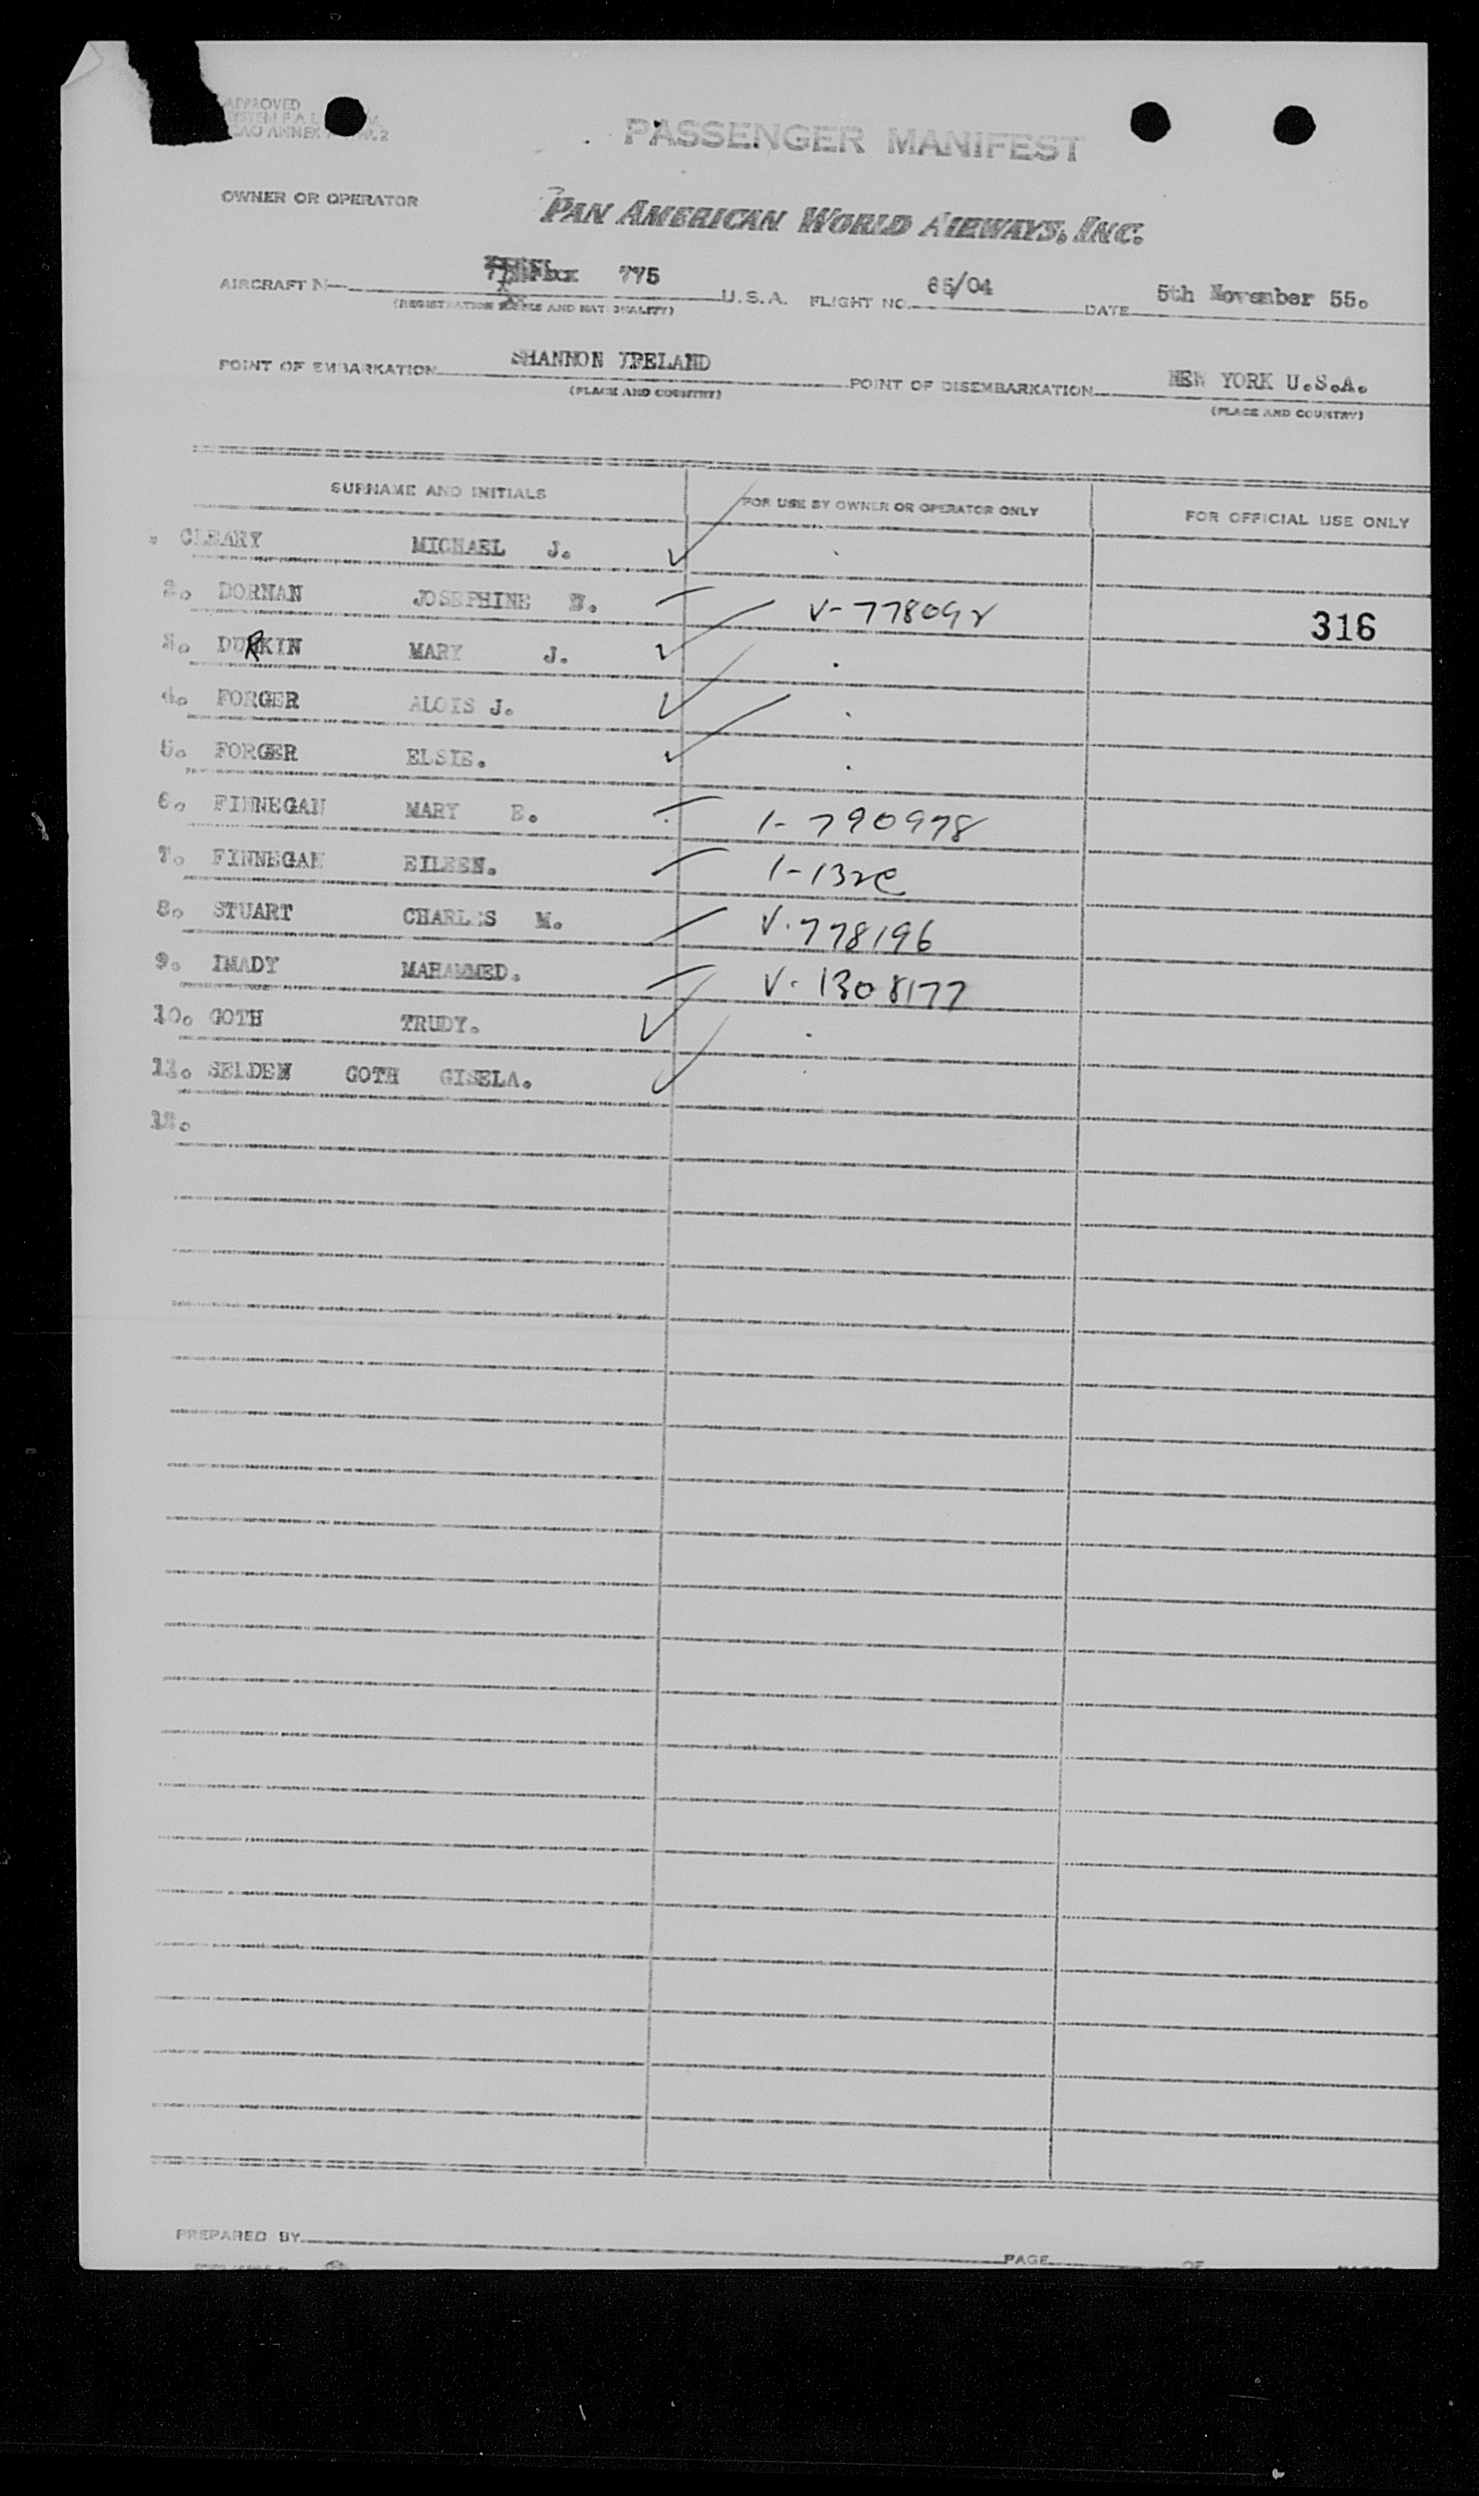 APPROVED
PASSENGER MANIFEST
OWNER OR OPERATOR
PAN AMERICAN WORLD AIRWAYS, INC.
AIRCRAFT N 775 U.S.A. FLIGHT NO. 65/04 DATE 5th November 55.
(REGISTRATION MARKS AND NATIONALITY)
POINT OF EMBARKATION SHANNON IRELAND POINT OF DISEMBARKATION NEW YORK U.S.A.
(PLACE AND COUNTRY) (PLACE AND COUNTRY)
SURNAME AND INITIALS FOR USE BY OWNER OR OPERATOR ONLY FOR OFFICIAL USE ONLY
CLEARY MICHAEL J.
2. DORNAN JOSEPHINE V-778092 316
3. DURKIN MARY J.
4. FORGER ALOIS J.
5. FORGER ELSIE.
6. FINNEGAN MARY E. 1-790978
7. FINNEGAN EILEEN. 1-132C
8. STUART CHARLES M. V-778196
9. IMADY MAHAMMED. V-1308177
10. GOTH TRUDY.
11. SELDEN GOTH GISELA.
12.
PREPARED BY PAGE OF